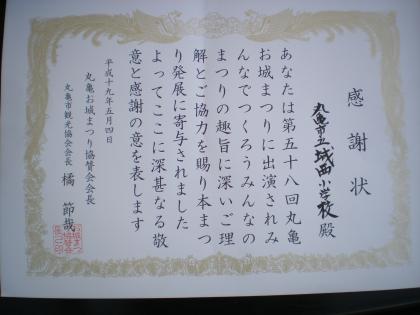 感謝状
丸亀市立城西小学校 殿
あなたは第五十八回丸亀
お城まつりに出演されみ
んなでつくろうみんなの
まつりの趣旨に深いご理
解とご協力を賜り本まつ
り発展に寄与されました
よってここに深甚なる敬
意と感謝の意を表します
平成十九年五月四日
丸亀お城まつり協賛会会長
丸亀市観光協会会長 橘 節哉